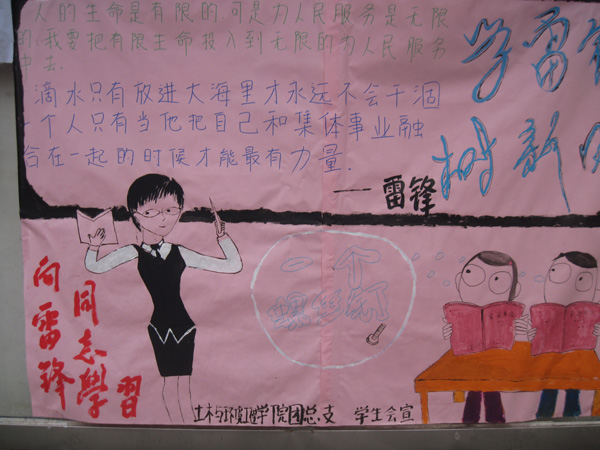 人的生命是有限的,可是为人民服务是无限
的,我要把有限生命投入到无限的为人民服务
中去.
滴水只有放进大海里才永远不会干涸
一个人只有当他把自己和集体事业融
合在一起的时候才能最有力量.
——雷锋
学雷锋
树新
向雷锋
同志學習
一个
螺丝钉
土木与环境工程学院团总支 学生会宣